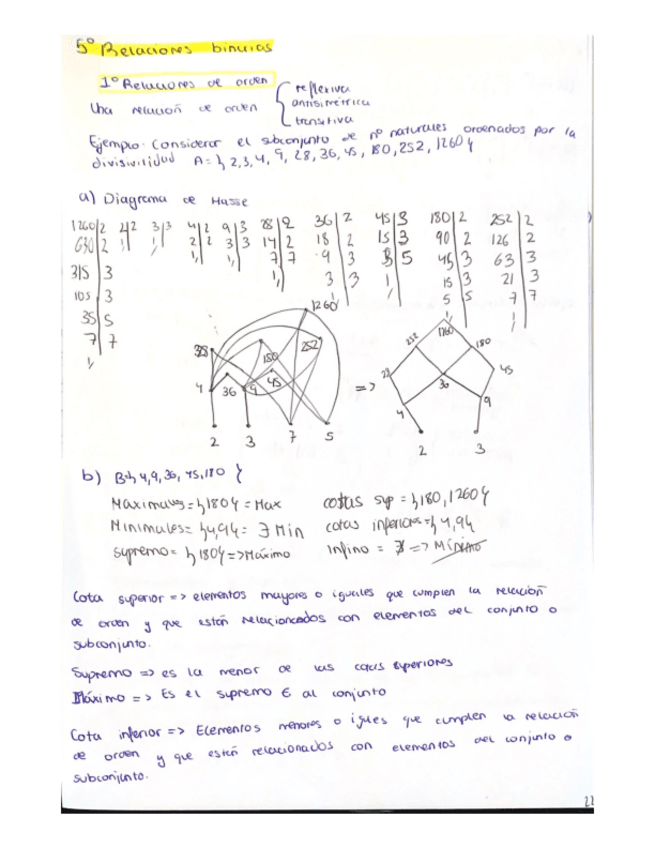 5º Relaciones binarias
1º Relaciones de orden
Una relación de orden { reflexiva
antisimétrica
transitiva
Ejemplo. Considerar el subconjunto de nº naturales ordenados por la
divisivilidad A={2,3,4,9,28,36,45,180,252,1260}
a) Diagrama de Hasse
1260|2 2|2 3|3 4|2 9|3 28|2 36|2 45|3 180|2 252|2
630|2 1| 1| 2|2 3|3 14|2 18|2 15|3 90|2 126|2
315|3 1| 1| 7|7 9|3 5|5 45|3 63|3
105|3 1| 3|3 1| 15|3 21|3
35|5 1| 5|5 7|7
7|7 1| 1|
1|
1260
28 180 252
4 36 9 45
2 3 7 5
=>
1260
252 180
28 36 45
4 9
2 3
b) B={4,9,36,45,180}
Maximales={180}=Max cotas sup={180,1260}
Minimales={4,9}=∄ Min cotas inferiores={4,9}
Supremo={180}=>Máximo Infino=∄=>Mínimo
Cota superior => elementos mayores o iguales que cumplen la relación
de orden y que están relacionados con elementos del conjunto o
subconjunto.
Supremo => es la menor de las cotas superiores
Máximo => Es el supremo ∈ al conjunto
Cota inferior => Elementos menores o igules que cumplen la relación
de orden y que están relacionados con elementos del conjunto o
subconjunto.